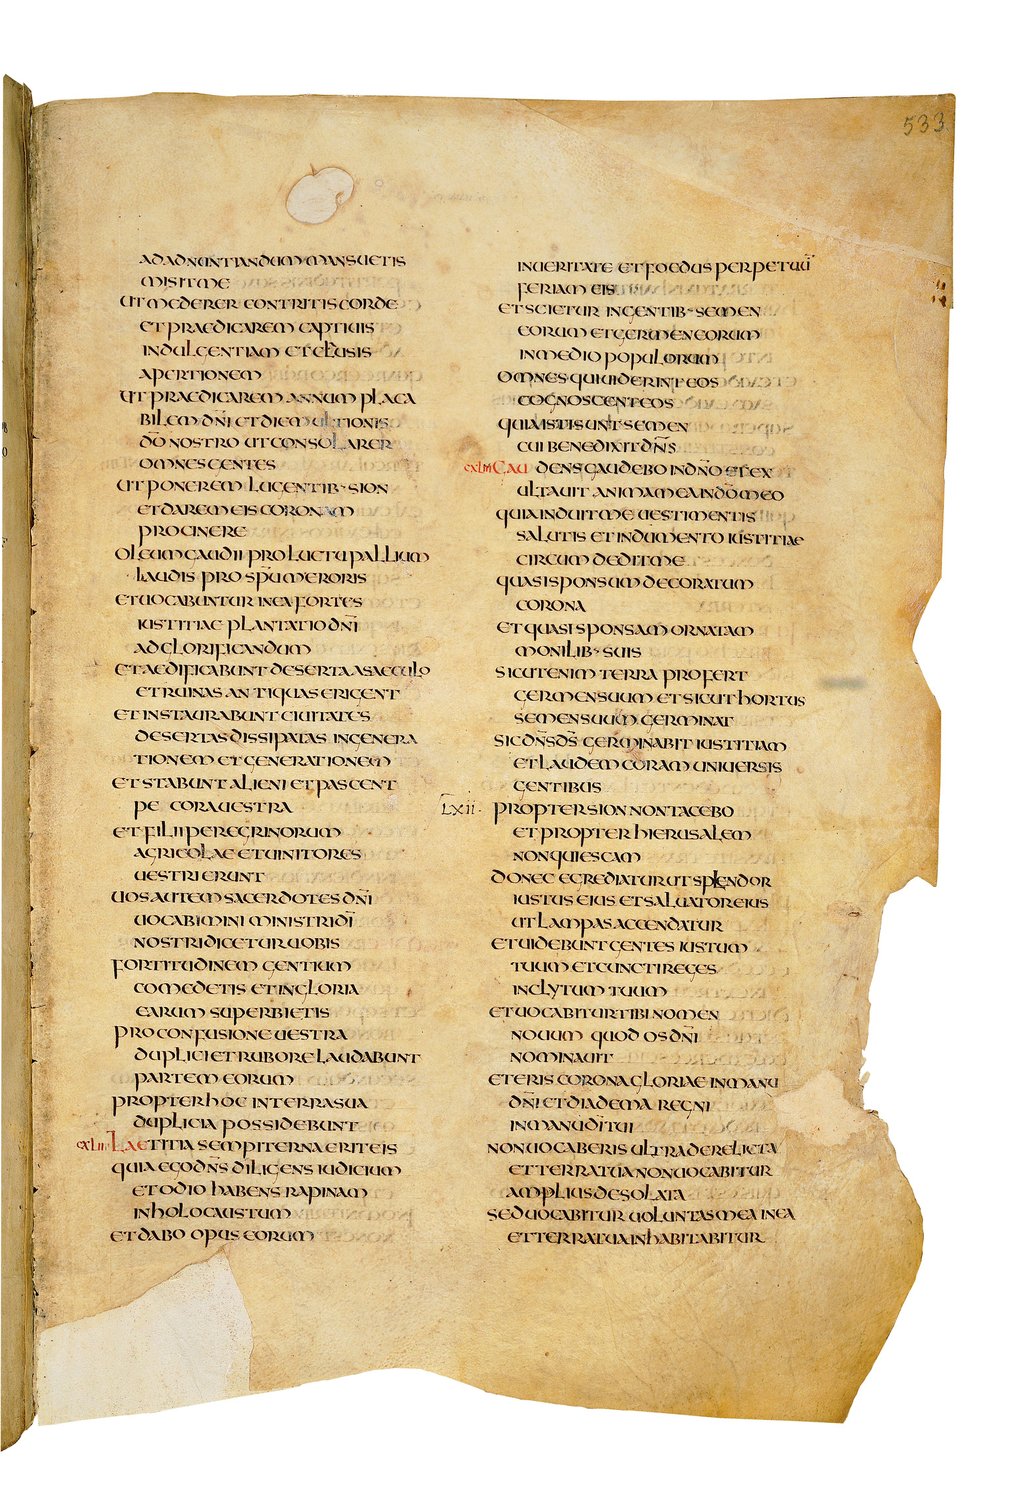 533
ADADNUNTIANDUM MANSUETIS
MISIT ME
UT MEDERER CONTRITIS CORDE
ET PRAEDICAREM CAPTIUIS
INDULGENTIAM ET CLUSIS
APERTIONEM
UT PRAEDICAREM ANNUM PLACA
BILEM DN̄I ET DIEM ULTIONIS
DŌ NOSTRO UT CONSOLARER
OMNES GENTES
UT PONEREM LUGENTIB· SION
ET DAREM EIS CORONAM
PRO CINERE
OLEUM GAUDII PRO LUCTU PALLIUM
LAUDIS PRO SPŪ MERORIS
ET UOCABUNTUR IN EA FORTES
IUSTITIAE PLANTATIO DN̄I
AD GLORIFICANDUM
ET AEDIFICABUNT DESERTA A SAECULO
ET RUINAS ANTIQUAS ERIGENT
ET INSTAURABUNT CIUITATES
DESERTAS DISSIPATAS IN GENERA
TIONEM ET GENERATIONEM
ET STABUNT ALIENI ET PASCENT
PECORA UESTRA
ET FILII PEREGRINORUM
AGRICOLAE ET UINITORES
UESTRI ERUNT
UOS AUTEM SACERDOTES DN̄I
UOCABIMINI MINISTRI DĪ
NOSTRI DICETUR UOBIS
FORTITUDINEM GENTIUM
COMEDETIS ET IN GLORIA
EARUM SUPERBIETIS
PRO CONFUSIONE UESTRA
DUPLICI ET RUBORE LAUDABUNT
PARTEM EORUM
PROPTER HOC IN TERRA SUA
DUPLICIA POSSIDEBUNT
CXLII LAETITIA SEMPITERNA ERIT EIS
QUIA EGO DN̄S DILIGENS IUDICIUM
ET ODIO HABENS RAPINAM
IN HOLOCAUSTUM
ET DABO OPUS EORUM
IN UERITATE ET FOEDUS PERPETUŪ
FERIAM EIS
ET SCIETUR IN GENTIB· SEMEN
EORUM ET GERMEN EORUM
IN MEDIO POPULORUM
OMNES QUI UIDERINT EOS
COGNOSCENT EOS
QUIA ISTI SUNT SEMEN
CUI BENEDIXIT DN̄S
CXLIII GAUDENS GAUDEBO IN DN̄O ET EX
ULTAUIT ANIMA MEA IN DŌ MEO
QUIA INDUIT ME UESTIMENTIS
SALUTIS ET INDUMENTO IUSTITIAE
CIRCUMDEDIT ME
QUASI SPONSUM DECORATUM
CORONA
ET QUASI SPONSAM ORNATAM
MONILIB· SUIS
SICUT ENIM TERRA PROFERT
GERMEN SUUM ET SICUT HORTUS
SEMEN SUUM GERMINAT
SIC DN̄S DS̄ GERMINABIT IUSTITIAM
ET LAUDEM CORAM UNIUERSIS
GENTIBUS
LXII· PROPTER SION NON TACEBO
ET PROPTER HIERUSALEM
NON QUIESCAM
DONEC EGREDIATUR UT SPLENDOR
IUSTUS EIUS ET SALUATOR EIUS
UT LAMPAS ACCENDATUR
ET UIDEBUNT GENTES IUSTUM
TUUM ET CUNCTI REGES
INCLYTUM TUUM
ET UOCABITUR TIBI NOMEN
NOUUM QUOD OS DN̄I
NOMINAUIT
ET ERIS CORONA GLORIAE IN MANU
DN̄I ET DIADEMA REGNI
IN MANU DĪ TUI
NON UOCABERIS ULTRA DERELICTA
ET TERRA TUA NON UOCABITUR
AMPLIUS DESOLATA
SED UOCABITUR UOLUNTAS MEA IN EA
ET TERRA TUA INHABITABITUR